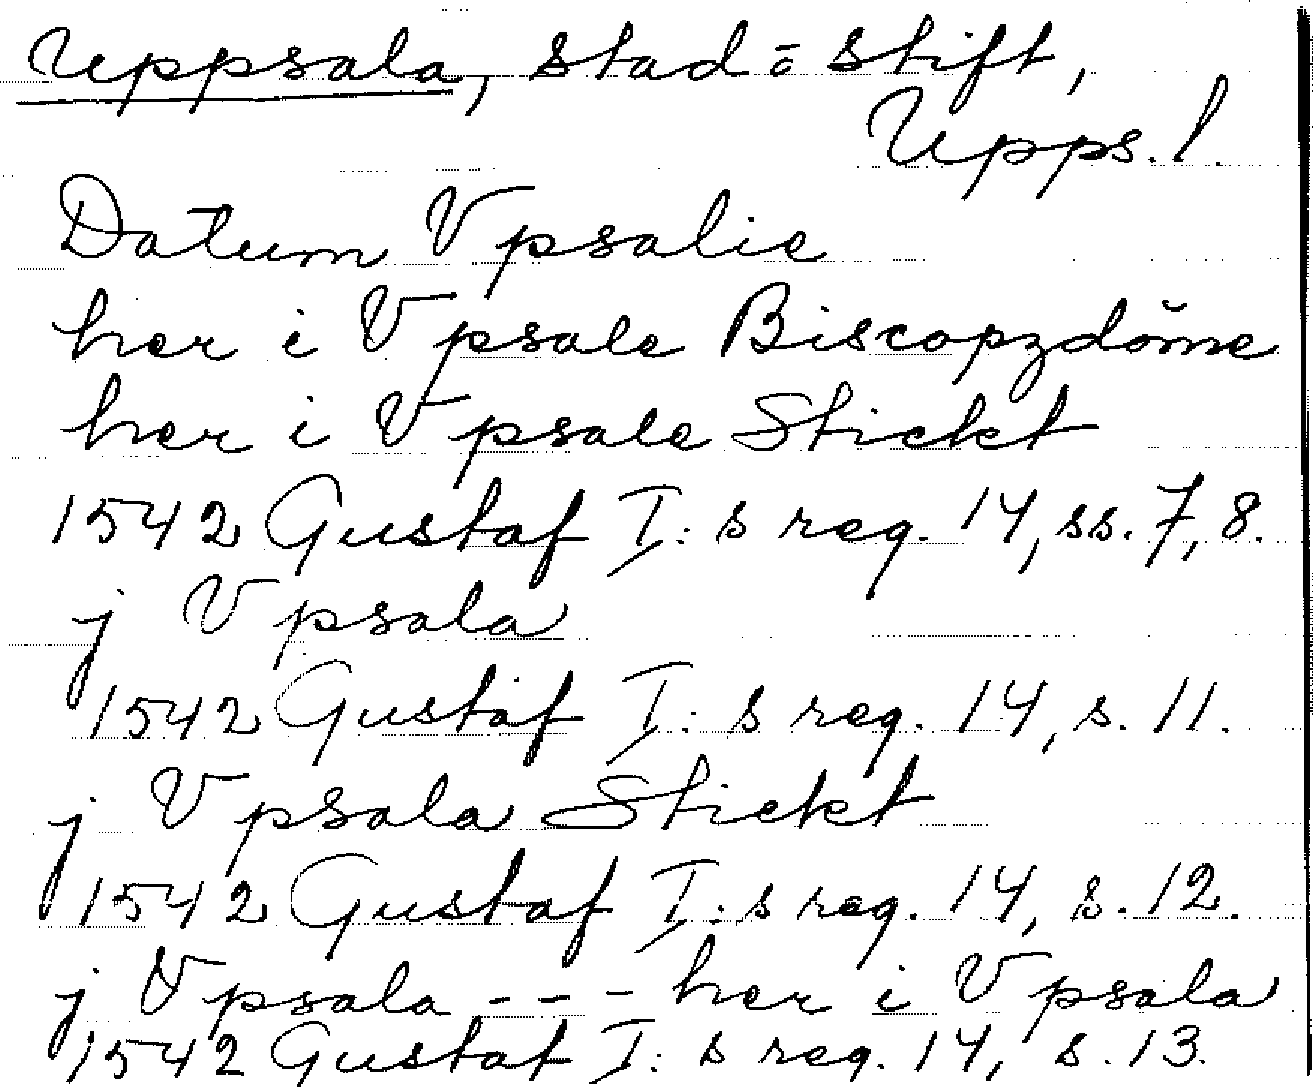 Uppsala, stad o stift,
Upps. l.
Datum Vpsalie
her i Vpsale Biscopzdöme
her i Vpsale Stickt
1542 Gustaf I:s reg. 14, ss. 7, 8.
j Vpsala
1542 Gustaf I:s reg. 14, s. 11.
j Vpsala Stickt
1542 Gustaf I:s reg. 14, s. 12.
j Vpsala --- her i Vpsala
1542 Gustaf I:s reg. 14, s. 13.